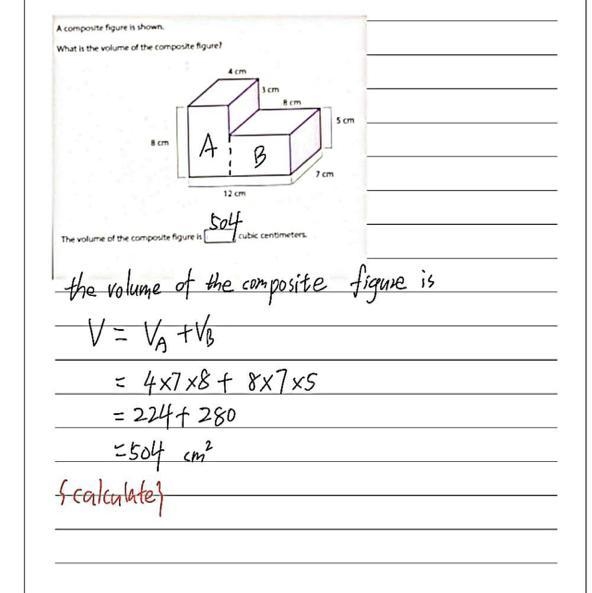 A composite figure is shown.
What is the volume of the composite figure?
4 cm
3 cm
8 cm
5 cm
8 cm
A
B
7 cm
12 cm
504
The volume of the composite figure is cubic centimeters.
the volume of the composite figure is
V = VA + VB
= 4×7×8 + 8×7×5
= 224 + 280
= 504 cm²
{calculate}